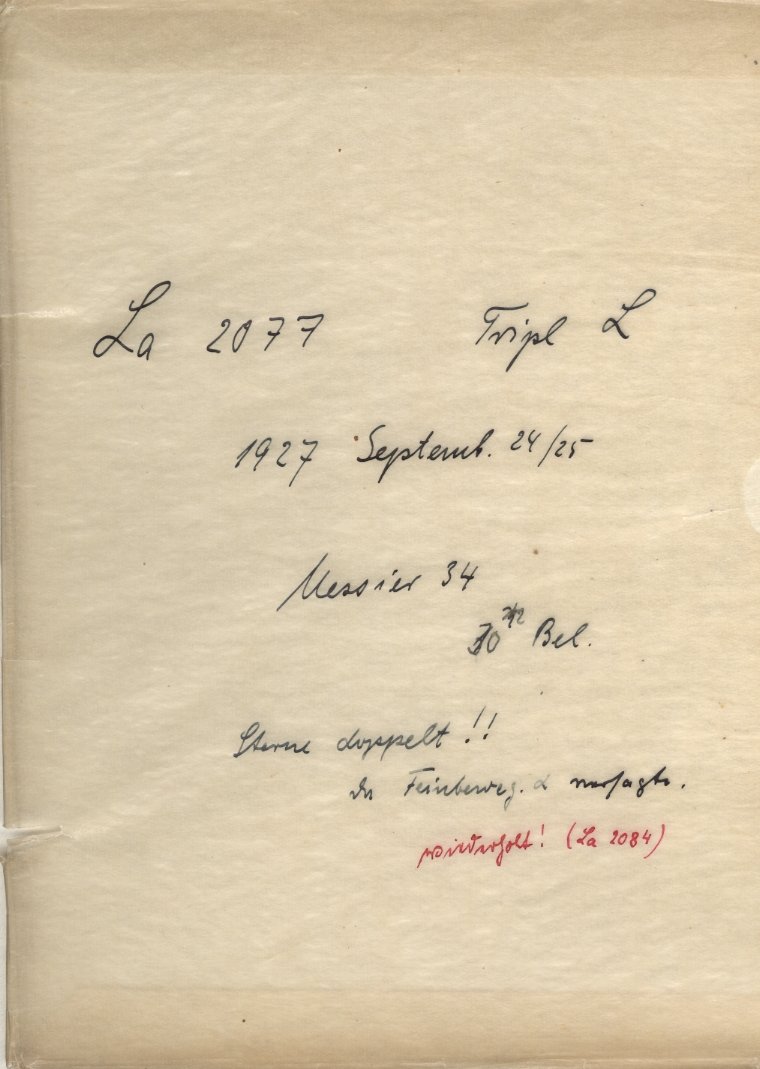 La 2077 Tripl L
1927 Septemb. 24/25
Messier 34
Bel.
Sterne doppelt !!
da Feinbeweg. α versagte.
wiederholt! (La 2084)